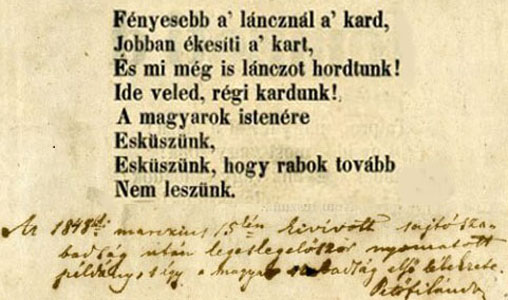 Fényesebb a' láncznál a' kard,
Jobban ékesíti a' kart,
És mi még is lánczot hordtunk!
Ide veled, régi kardunk!
A magyarok istenére
Esküszünk,
Esküszünk, hogy rabok tovább
Nem leszünk.
Az marczius 15kén kivívott sajtósza-
badság után legeslegelőször nyomatott
példány s így a magyar szabadság első lélekzete.
Petőfi Sándor